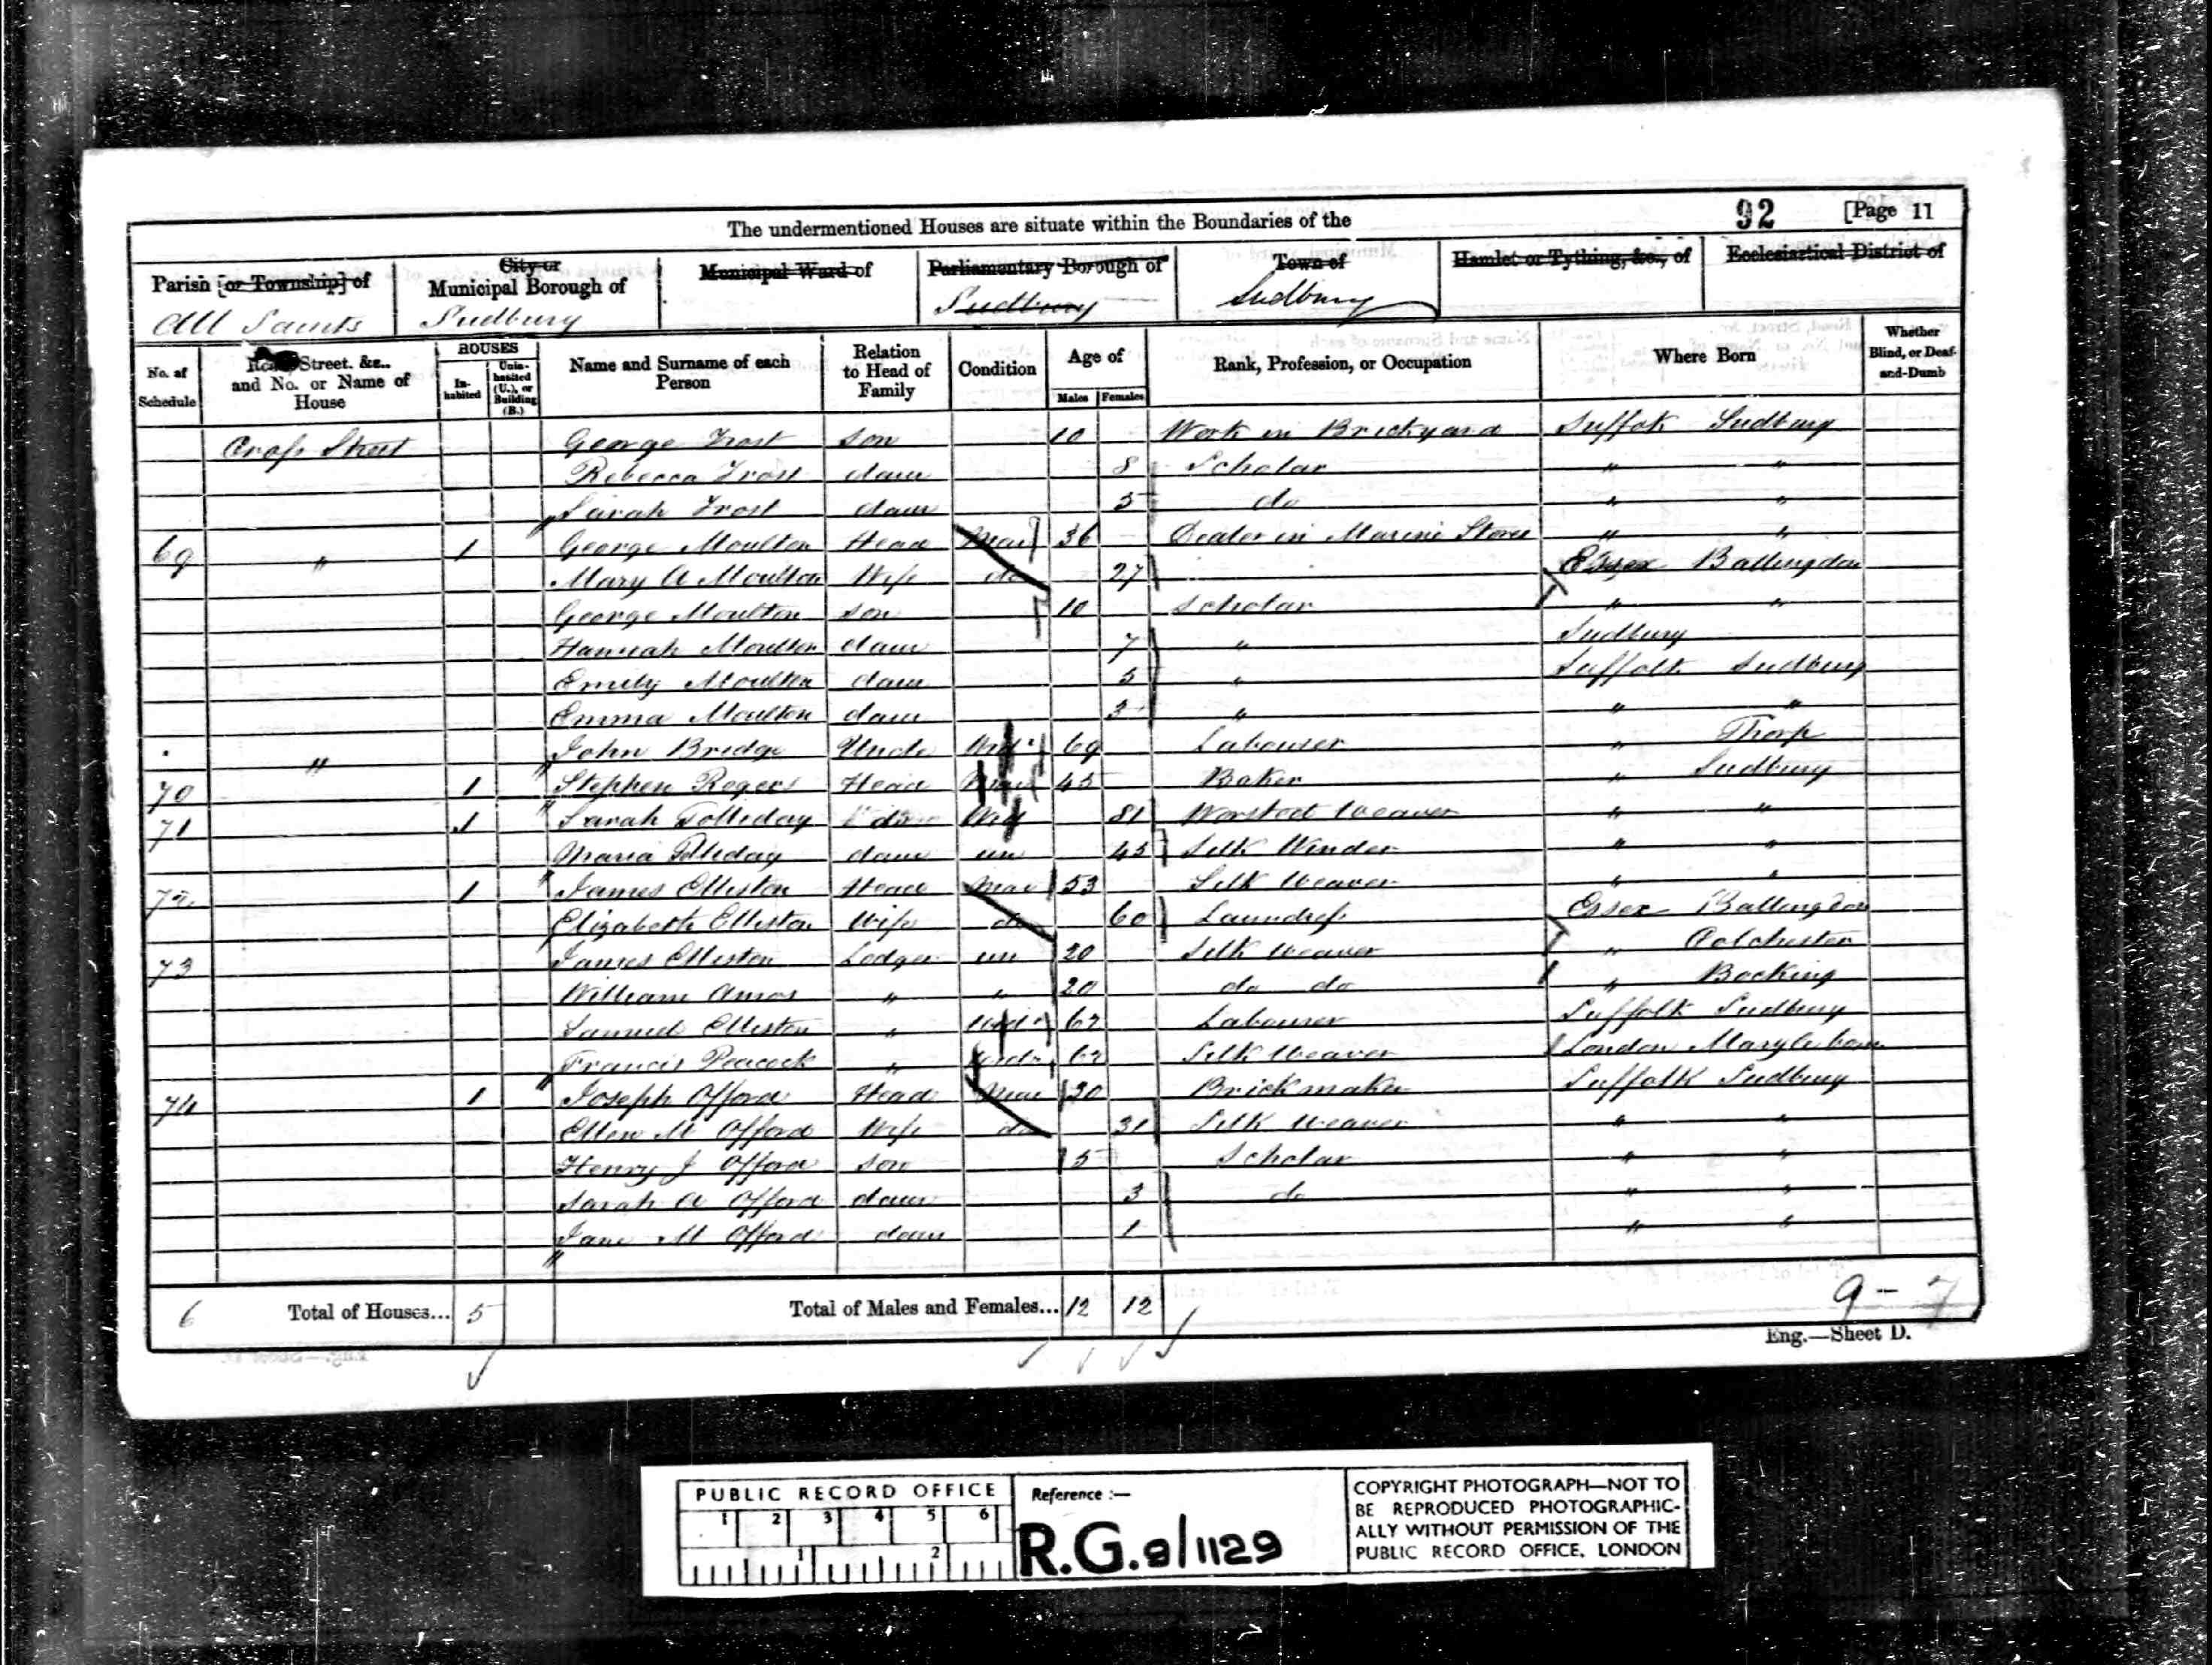 The undermentioned Houses are situate within the Boundaries of the 92 [Page 11
Parish [or Township] of City or Municipal Borough of Municipal Ward of Parliamentary Borough of Town of Hamlet or Tything, &c., of Ecclesiastical District of
All Saints Sudbury Sudbury Sudbury
No. of Schedule Street, &c., and No. or Name of House HOUSES Inhabited Uninhabited (U.), or Building (B.) Name and Surname of each Person Relation to Head of Family Condition Age of Males Females Rank, Profession, or Occupation Where Born Whether Blind, or Deaf-and-Dumb
Cross Street George Frost Son 10 Work in Brickyard Suffolk Sudbury
Rebecca Frost daur 8 Scholar " "
Sarah Frost daur 5 do " "
69 " 1 George Moulton Head Mar 36 Dealer in Marine Stores " "
Mary A Moulton Wife do 27 Essex Ballingdon
George Moulton Son 10 Scholar " "
Hannah Moulton daur 7 " Sudbury
Emily Moulton daur 5 " Suffolk Sudbury
Emma Moulton daur 3 " " "
" John Bridge Uncle Widr 69 Labourer " Thorp
70 1 Stephen Rogers Head Mar 45 Baker " Sudbury
71 1 Sarah Tolliday do Wid 81 Worsted Weaver " "
Maria Tolliday daur un 45 Silk Winder " "
72 1 James Elliston Head Mar 53 Silk Weaver " "
Elizabeth Elliston Wife do 60 Laundress Essex Ballingdon
73 James Elliston Lodger un 20 Silk Weaver " Colchester
William Amos " " 20 do do " Bocking
Samuel Elliston " Widr 62 Labourer Suffolk Sudbury
Francis Peacock " Widr 62 Silk Weaver London Marylebone
74 1 Joseph Offord Head Mar 30 Brickmaker Suffolk Sudbury
Ellen M Offord Wife do 31 Silk Weaver " "
Henry J Offord Son 5 Scholar " "
Sarah A Offord daur 3 do " "
Jane M Offord daur 1 " "
6 Total of Houses... 5 Total of Males and Females... 12 12 9 - 7
Eng.—Sheet D.
PUBLIC RECORD OFFICE
1 2 3 4 5 6
1 2
Reference :—
R.G.9/1129
COPYRIGHT PHOTOGRAPH—NOT TO
BE REPRODUCED PHOTOGRAPHIC-
ALLY WITHOUT PERMISSION OF THE
PUBLIC RECORD OFFICE, LONDON